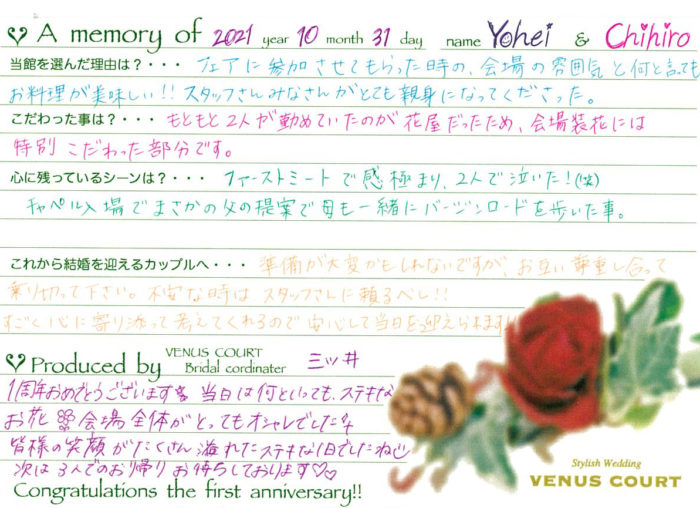 A memory of 2021 year 10 month 31 day name Yohei & Chihiro
当館を選んだ理由は?・・・ フェアに参加させてもらった時の、会場の雰囲気と何と言っても
お料理が美味しい!! スタッフさんみなさんがとても親身になってくださった。
こだわった事は?・・・ もともと2人が勤めていたのが花屋だったため、会場装花には
特別こだわった部分です。
心に残っているシーンは?・・・ ファーストミートで感極まり、2人で泣いた!(笑)
チャペル入場でまさかの父の提案で母も一緒にバージンロードを歩いた事。
これから結婚を迎えるカップルへ・・・ 準備が大変かもしれないですが、お互い尊重し合って
乗り切って下さい。不安な時はスタッフさんに頼るべし!!
すごく心に寄り添って考えてくれるので安心して当日を迎えられます!!
Produced by VENUS COURT Bridal cordinater 三ッ井
1周年おめでとうございます 当日は何といっても、ステキな
お花 会場全体がとってもオシャレでした
皆様の笑顔がたくさん溢れたステキな1日でしたね
次は3人でのお帰りお待ちしております♡♡
Congratulations the first anniversary!!
Stylish Wedding
VENUS COURT